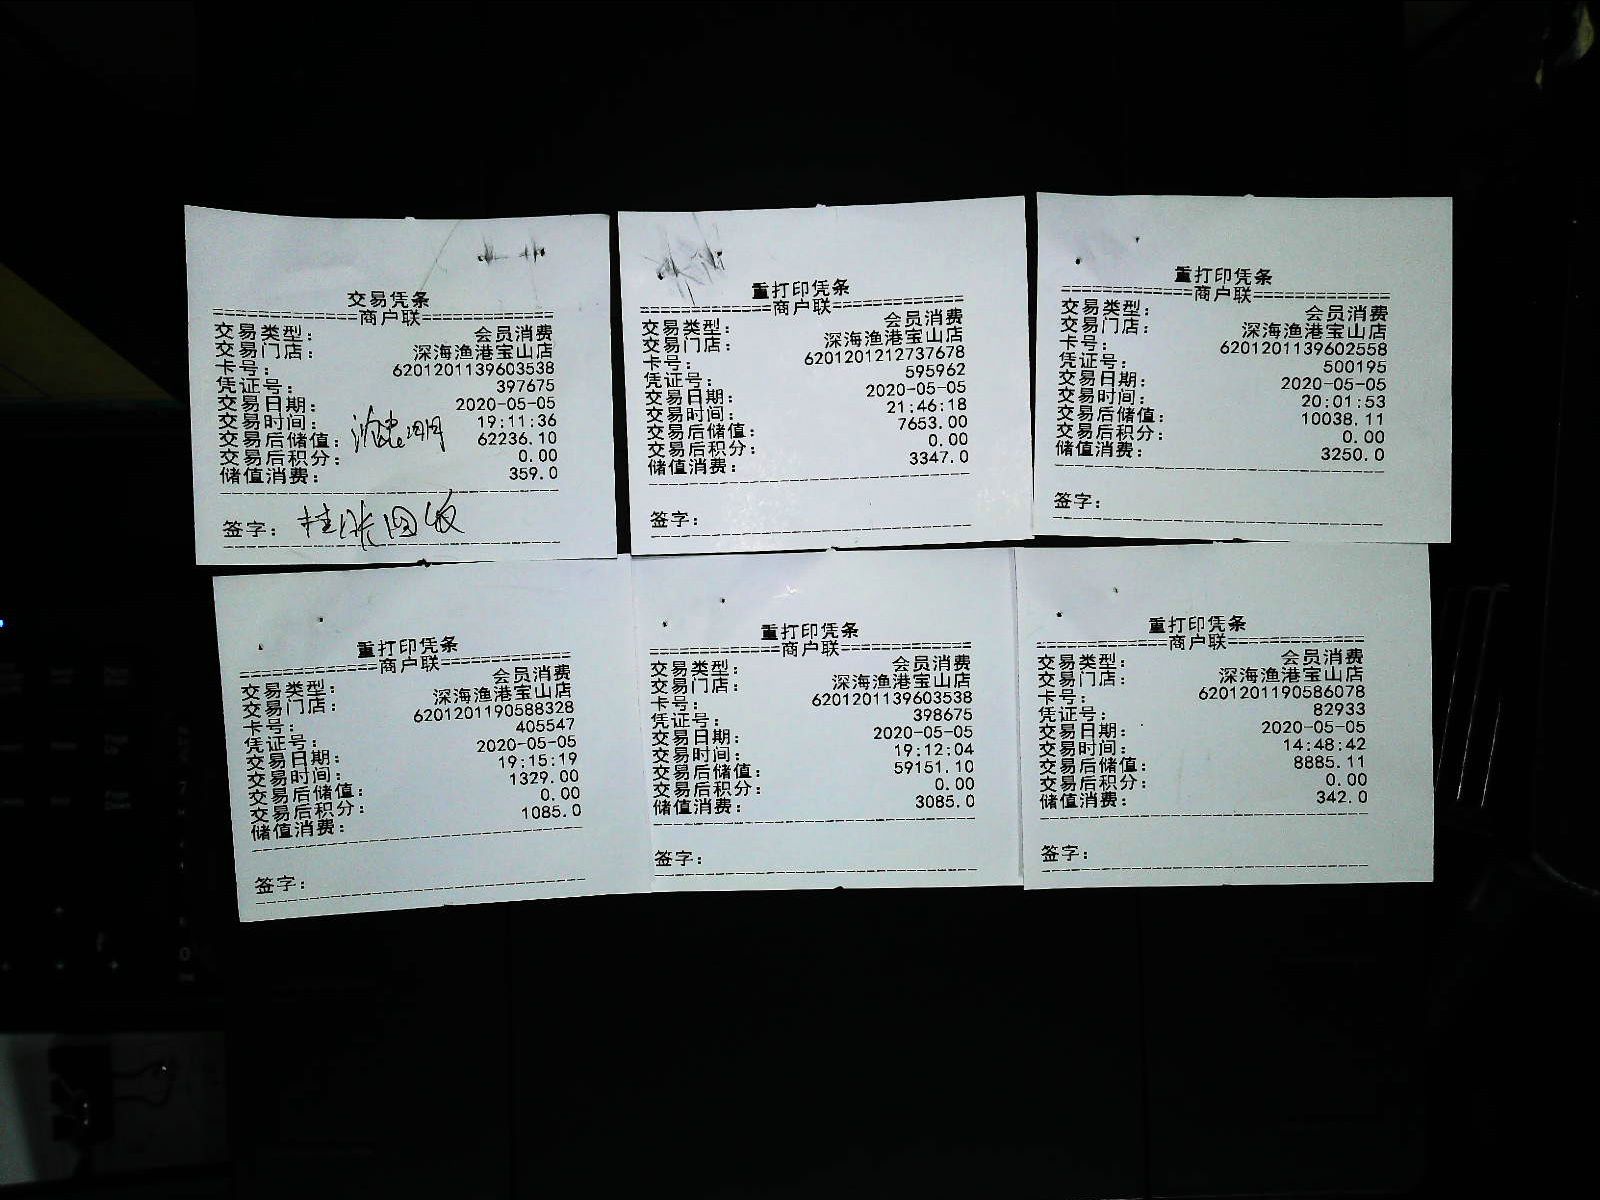 交易凭条
============商户联============
交易类型： 会员消费
交易门店： 深海渔港宝山店
卡号： 6201201139603538
凭证号： 397675
交易日期： 2020-05-05
交易时间： 19:11:36
交易后储值： 62236.10
交易后积分： 0.00
储值消费： 359.0
签字： 挂账回饭
重打印凭条
============商户联============
交易类型： 会员消费
交易门店： 深海渔港宝山店
卡号： 6201201212737678
凭证号： 595962
交易日期： 2020-05-05
交易时间： 21:46:18
交易后储值： 7653.00
交易后积分： 0.00
储值消费： 3347.0
签字：
重打印凭条
============商户联============
交易类型： 会员消费
交易门店： 深海渔港宝山店
卡号： 6201201139602558
凭证号： 500195
交易日期： 2020-05-05
交易时间： 20:01:53
交易后储值： 10038.11
交易后积分： 0.00
储值消费： 3250.0
签字：
重打印凭条
============商户联============
交易类型： 会员消费
交易门店： 深海渔港宝山店
卡号： 6201201190588328
凭证号： 405547
交易日期： 2020-05-05
交易时间： 19:15:19
交易后储值： 1329.00
交易后积分： 0.00
储值消费： 1085.0
签字：
重打印凭条
============商户联============
交易类型： 会员消费
交易门店： 深海渔港宝山店
卡号： 6201201139603538
凭证号： 398675
交易日期： 2020-05-05
交易时间： 19:12:04
交易后储值： 59151.10
交易后积分： 0.00
储值消费： 3085.0
签字：
重打印凭条
============商户联============
交易类型： 会员消费
交易门店： 深海渔港宝山店
卡号： 6201201190586078
凭证号： 82933
交易日期： 2020-05-05
交易时间： 14:48:42
交易后储值： 8885.11
交易后积分： 0.00
储值消费： 342.0
签字：